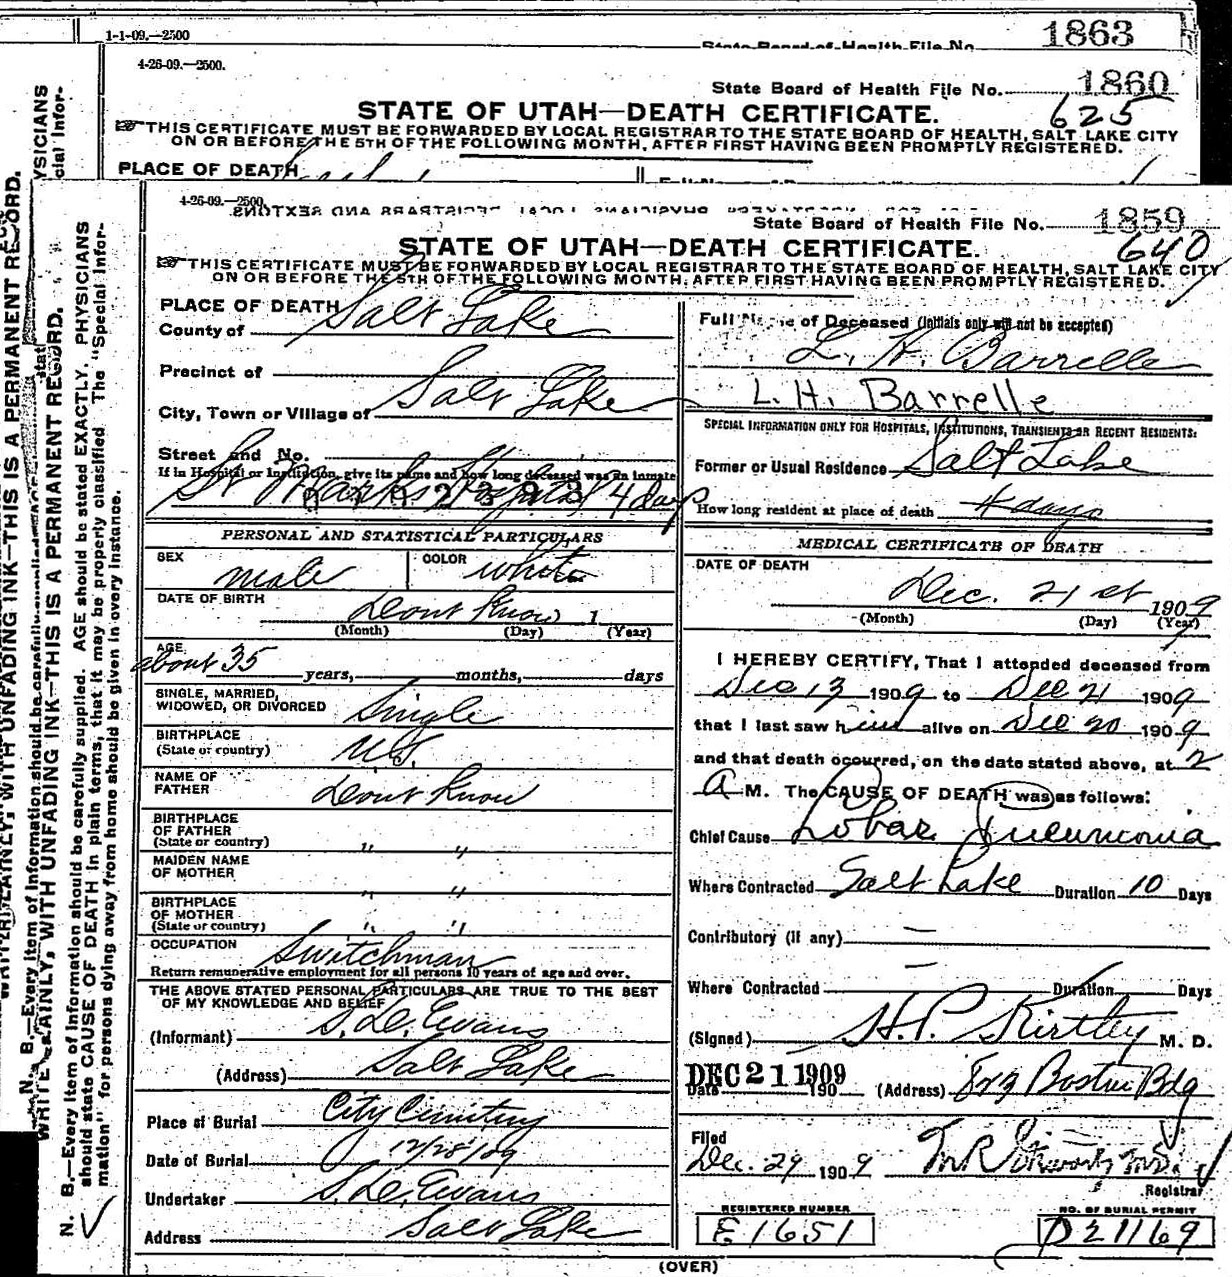 1-1-09.—2500
State Board of Health File No. 1863
4-26-09.—2500.
State Board of Health File No. 1860
625
STATE OF UTAH—DEATH CERTIFICATE.
THIS CERTIFICATE MUST BE FORWARDED BY LOCAL REGISTRAR TO THE STATE BOARD OF HEALTH, SALT LAKE CITY
ON OR BEFORE THE 5TH OF THE FOLLOWING MONTH, AFTER FIRST HAVING BEEN PROMPTLY REGISTERED.
PLACE OF DEATH
4-26-09.—2500.
State Board of Health File No. 1859
640
STATE OF UTAH—DEATH CERTIFICATE.
THIS CERTIFICATE MUST BE FORWARDED BY LOCAL REGISTRAR TO THE STATE BOARD OF HEALTH, SALT LAKE CITY
ON OR BEFORE THE 5TH OF THE FOLLOWING MONTH, AFTER FIRST HAVING BEEN PROMPTLY REGISTERED.
PLACE OF DEATH
County of Salt Lake
Precinct of
City, Town or Village of Salt Lake
Street and No.
If in Hospital or Institution, give its name and how long deceased was an inmate
St Marks Hospital 4 days
PERSONAL AND STATISTICAL PARTICULARS
SEX male COLOR white
DATE OF BIRTH Dont Know 1
(Month) (Day) (Year)
AGE about 35 years, months, days
SINGLE, MARRIED,
WIDOWED, OR DIVORCED Single
BIRTHPLACE
(State or country) U.S.
NAME OF
FATHER Dont Know
BIRTHPLACE
OF FATHER
(State or country) " "
MAIDEN NAME
OF MOTHER " "
BIRTHPLACE
OF MOTHER
(State or country) " "
OCCUPATION Switchman
Return remunerative employment for all persons 10 years of age and over.
THE ABOVE STATED PERSONAL PARTICULARS ARE TRUE TO THE BEST
OF MY KNOWLEDGE AND BELIEF
(Informant) S. D. Evans
(Address) Salt Lake
Place of Burial City Cemetery
Date of Burial 12/28/09
Undertaker S. D. Evans
Address Salt Lake
Full Name of Deceased (Initials only will not be accepted)
L. H. Barrelle
L. H. Barrelle
SPECIAL INFORMATION ONLY FOR HOSPITALS, INSTITUTIONS, TRANSIENTS OR RECENT RESIDENTS:
Former or Usual Residence Salt Lake
How long resident at place of death 4 days
MEDICAL CERTIFICATE OF DEATH
DATE OF DEATH
Dec. 21st 1909
(Month) (Day) (Year)
I HEREBY CERTIFY, That I attended deceased from
Dec 13 1909 to Dec 21 1909
that I last saw him alive on Dec 20 1909
and that death occurred, on the date stated above, at 2
A M. The CAUSE OF DEATH was as follows:
Chief Cause Lobar Pneumonia
Where Contracted Salt Lake Duration 10 Days
Contributory (if any) —
Where Contracted — Duration Days
(Signed) H. P. Kirtley M. D.
DEC 21 1909
Date 190 (Address) 823 Boston Bdg
Filed
Dec. 29 1909
Registrar
REGISTERED NUMBER
E1651
NO. OF BURIAL PERMIT
D21169
(OVER)
WRITE PLAINLY, WITH UNFADING INK—THIS IS A PERMANENT RECORD.
N. B.—Every item of information should be carefully supplied. AGE should be stated EXACTLY. PHYSICIANS
should state CAUSE OF DEATH in plain terms, that it may be properly classified. The "Special Infor-
mation" for persons dying away from home should be given in every instance.